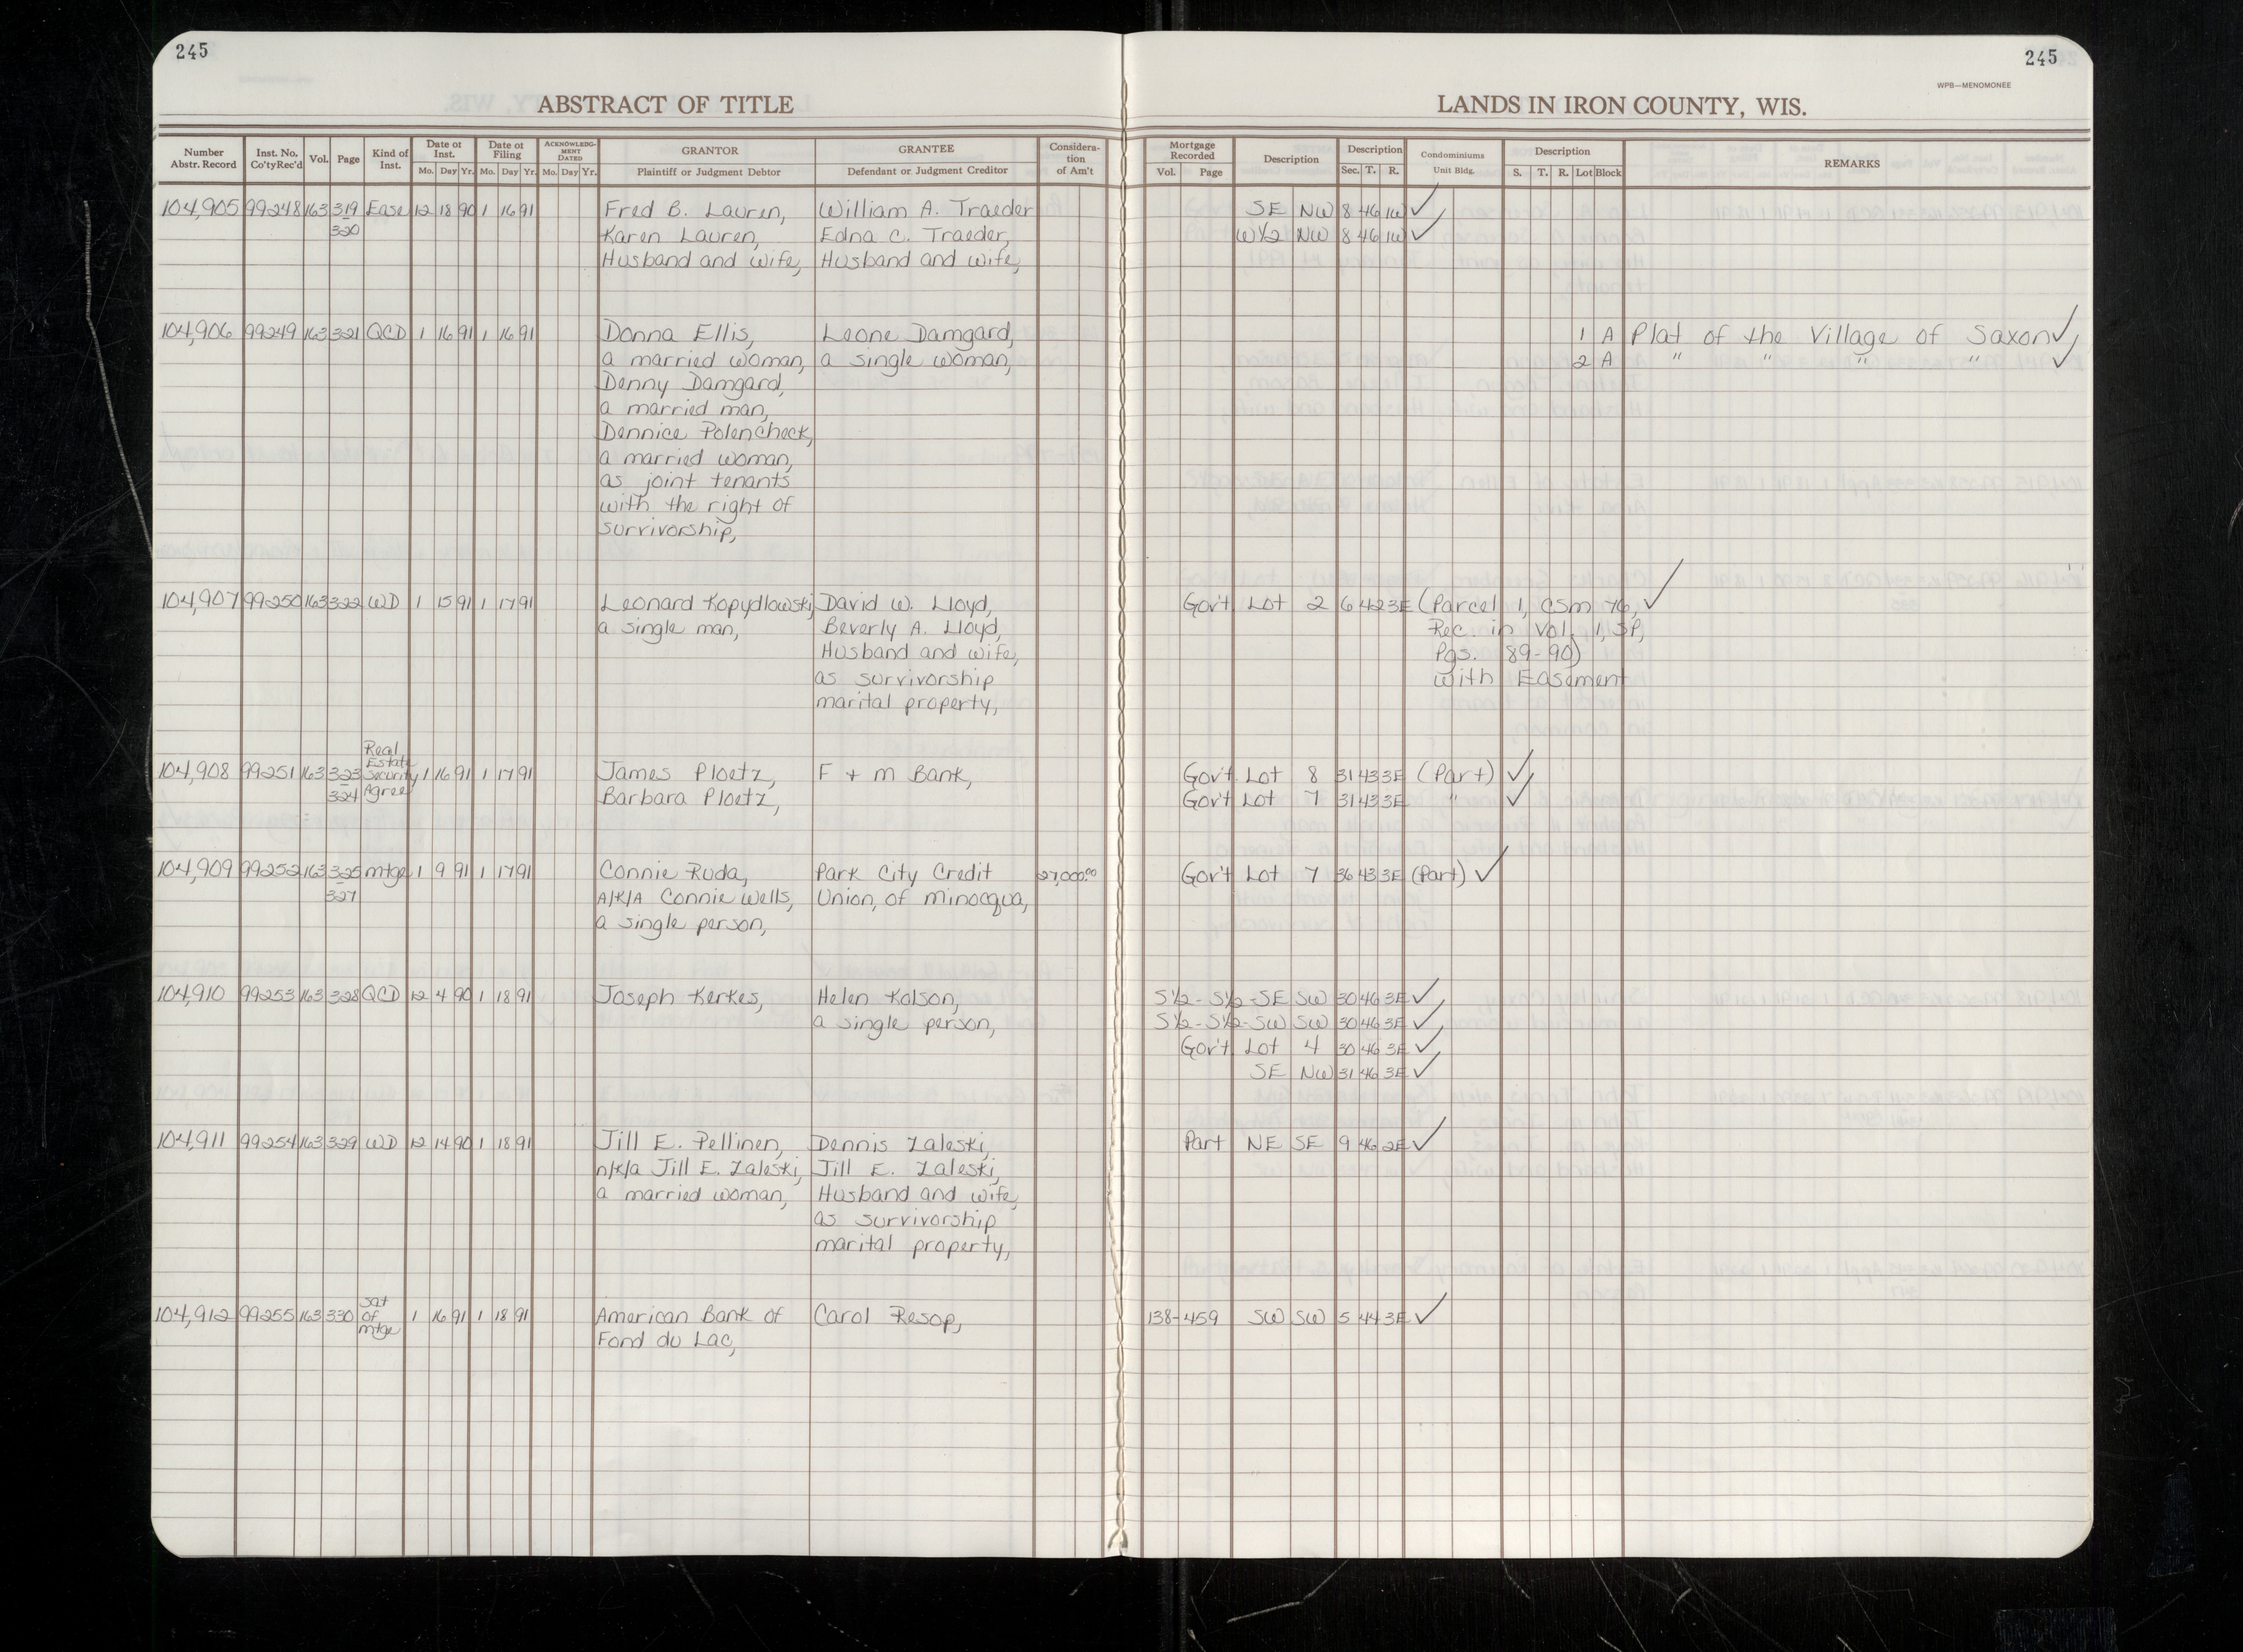 245
245
WPB—MENOMONEE
ABSTRACT OF TITLE
LANDS IN IRON COUNTY, WIS.
Number Abstr. Record Inst. No. Co'ty Rec'd Vol. Page Kind of Inst. Date of Inst. Mo. Day Yr. Date of Filing Mo. Day Yr. ACKNOWLEDGMENT DATED Mo. Day Yr. GRANTOR Plaintiff or Judgment Debtor GRANTEE Defendant or Judgment Creditor Consideration of Am't Mortgage Recorded Vol. Page Description Description Sec. T. R. Condominiums Unit Bldg. Description S. T. R. Lot Block REMARKS
104,905 99248 163 319 Ease 12 18 90 1 16 91 Fred B. Lauren, William A. Traeder SE NW 8 46 1W ✓
320 Karen Lauren, Edna C. Traeder, W½ NW 8 46 1W ✓
Husband and wife, Husband and wife,
104,906 99249 163 321 QCD 1 16 91 1 16 91 Donna Ellis, Leone Damgard, 1 A Plat of the Village of Saxon ✓
a married woman, a single woman, 2 A " " " " ✓
Denny Damgard,
a married man,
Dennice Polencheck,
a married woman,
as joint tenants
with the right of
survivorship,
104,907 99250 163 322 WD 1 15 91 1 17 91 Leonard Kopydlowski, David W. Lloyd, Gov't Lot 2 6 42 3E (Parcel 1, CSM 76, ✓
a single man, Beverly A. Lloyd, Rec. in Vol. 1, SP,
Husband and wife, Pgs. 89-90)
as survivorship with Easement
marital property,
Real
Estate
104,908 99251 163 323 Security 1 16 91 1 17 91 James Ploetz, F + M Bank, Gov't Lot 8 31 43 3E (Part) ✓
324 Agree Barbara Ploetz, Gov't Lot 7 31 43 3E " ✓
104,909 99252 163 325 mtge 1 9 91 1 17 91 Connie Ruda, Park City Credit 27,000.00 Gov't Lot 7 36 43 3E (Part) ✓
327 A/K/A Connie Wells, Union, of Minocqua,
a single person,
104,910 99253 163 328 QCD 12 4 90 1 18 91 Joseph Kerkes, Helen Kolson, S½-S½-SE SW 30 46 3E ✓
a single person, S½-S½-SW SW 30 46 3E ✓
Gov't Lot 4 30 46 3E ✓
SE NW 31 46 3E ✓
104,911 99254 163 329 WD 12 14 90 1 18 91 Jill E. Pellinen, Dennis Zaleski, Part NE SE 9 46 2E ✓
n/k/a Jill E. Zaleski, Jill E. Zaleski,
a married woman, Husband and wife,
as survivorship
marital property,
Sat
104,912 99255 163 330 of 1 16 91 1 18 91 American Bank of Carol Resop, 138-459 SW SW 5 44 3E ✓
mtge Fond du Lac,